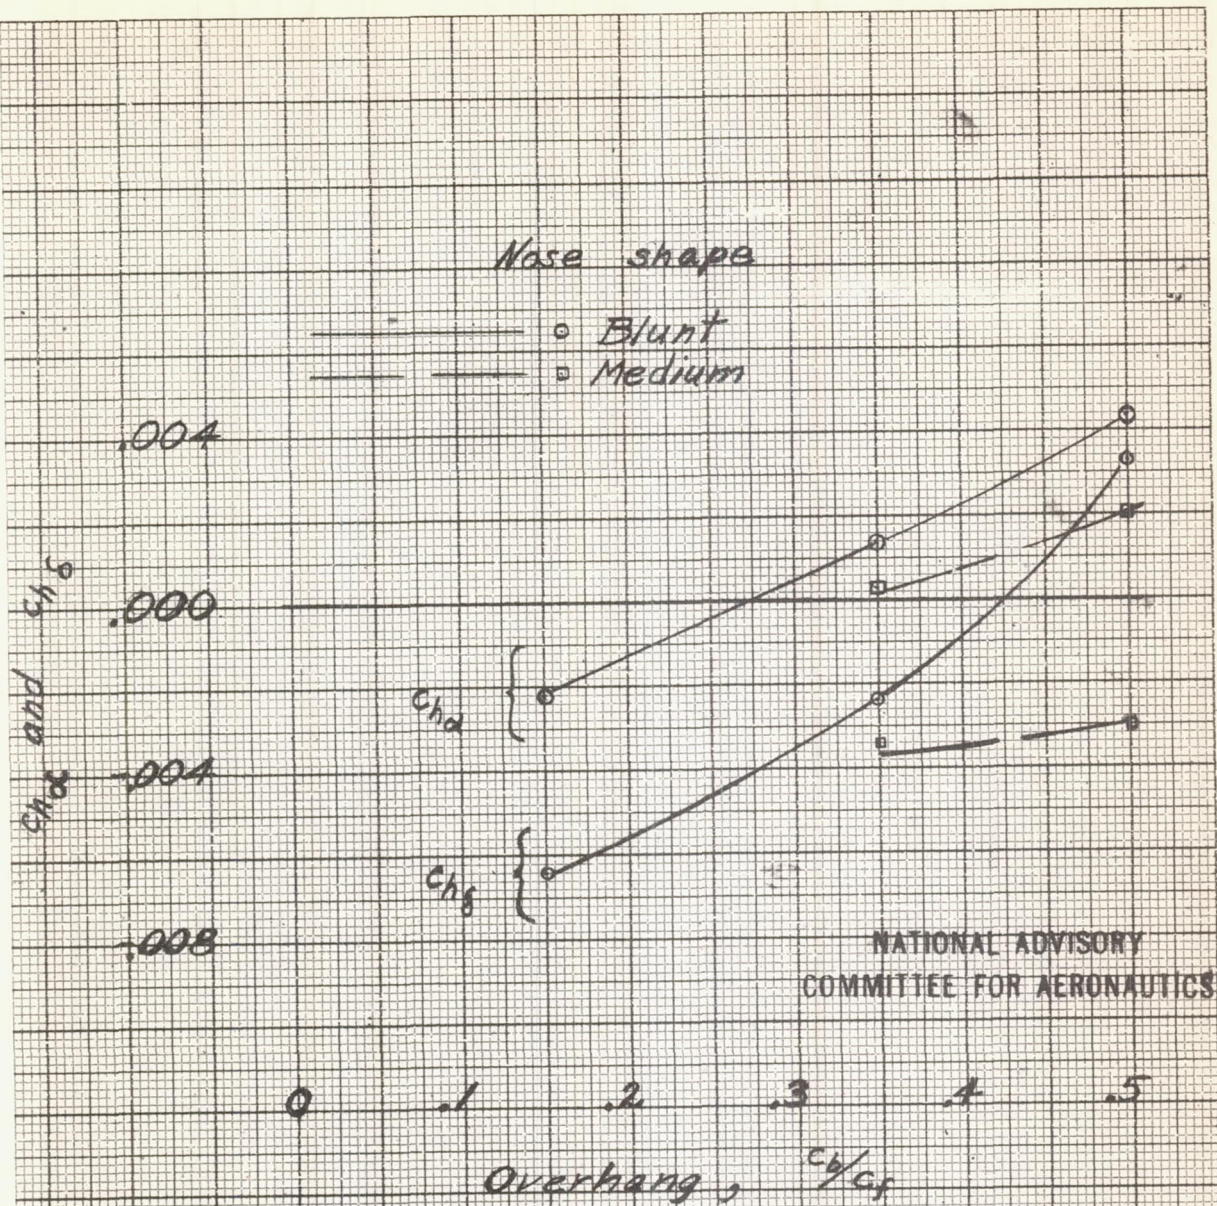 Nose shape
Blunt
Medium
.004
.000
-.004
-.008
chα and chδ
chα
chδ
NATIONAL ADVISORY
COMMITTEE FOR AERONAUTICS
0 .1 .2 .3 .4 .5
Overhang, cb/cf